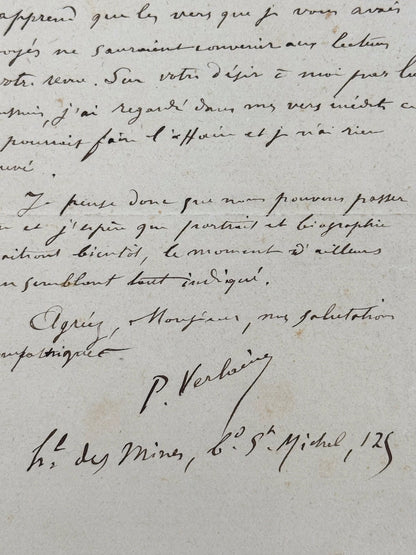 apprend que les vers que je vous avais
oyés ne sauraient convenir aux lecteurs
votre revue. Sur votre désir à moi par
j'ai regardé dans mes vers inédits ce
pourrait faire l'affaire et je n'ai rien
uvé.
Je pense donc que nous pouvons passer
et j'espère que portrait et biographie
aitront bientôt, le moment d'ailleurs
en semblant tout indiqué.
Agréez, Monsieur, mes salutations
mpathiques
P. Verlaine
hl des Mines, bd St Michel, 125